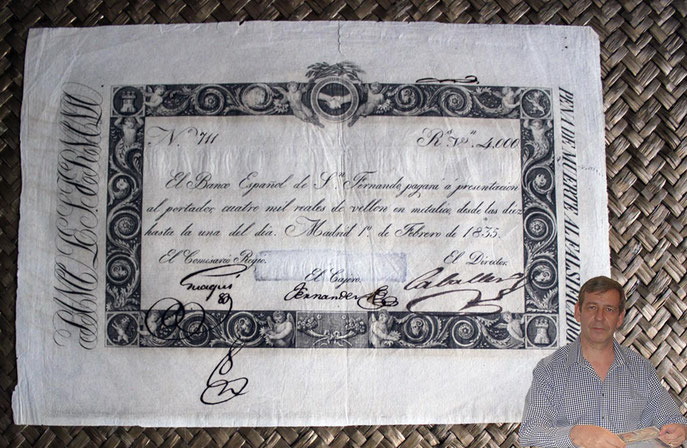 N. 711 Rˢ Vⁿ 4.000
El Banco Español de Sⁿ Fernando, pagará á presentacion
al portador, cuatro mil reales de vellon en metalico, desde las diez
hasta la una del dia. Madrid 1º de Febrero de 1835.
El Comisario Regio. El Cajero. El Director.
Fernandez Caballero
PENA DE MUERTE AL FALSIFICADOR